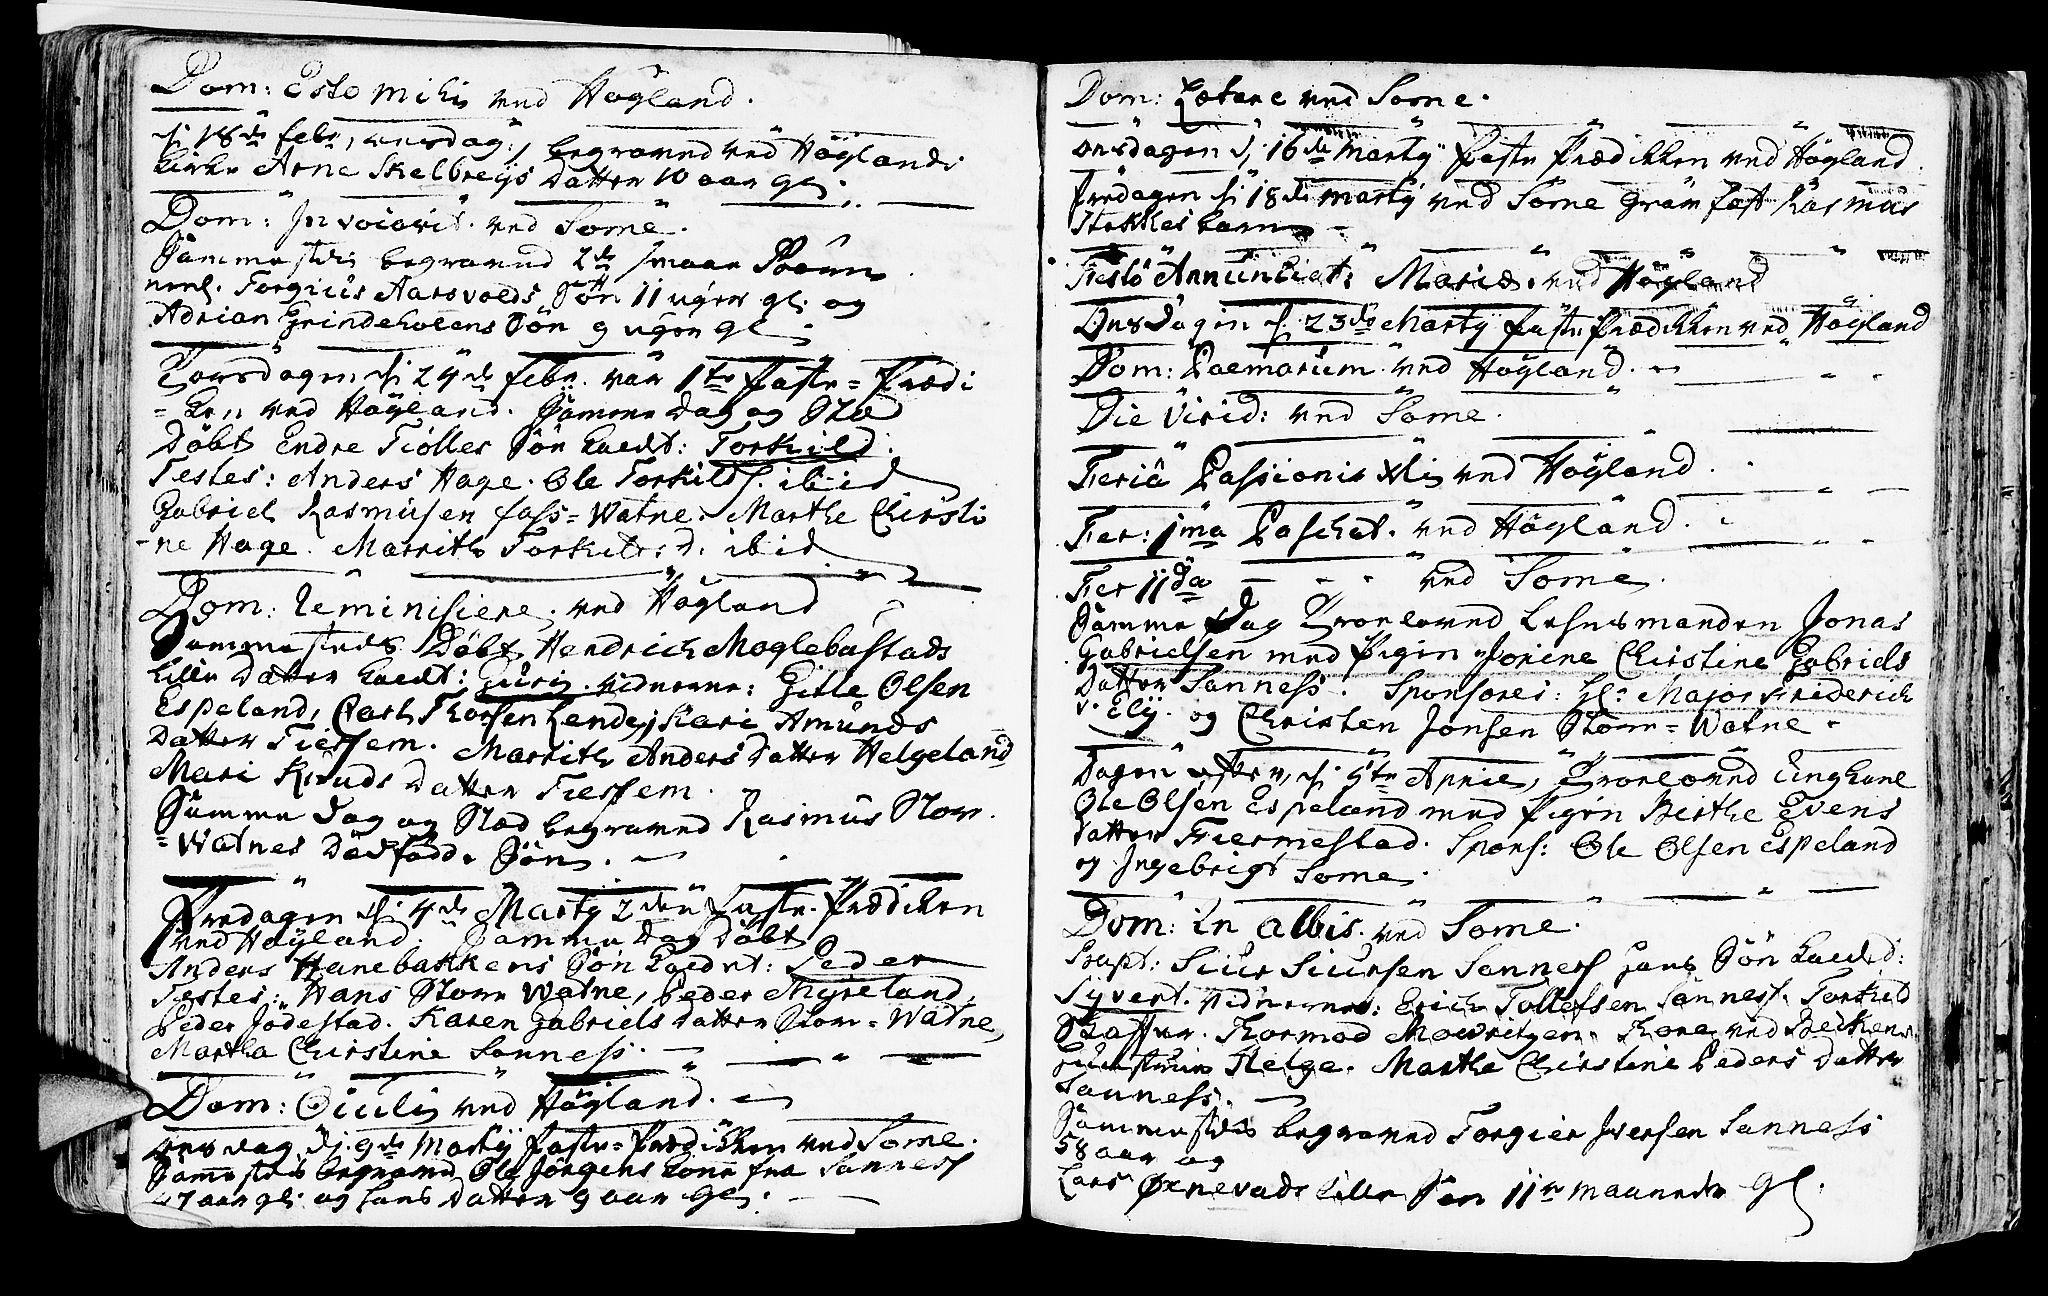 Dom: Esto Mihi ved Høgland.
d: 18de febr, onsdag, begraved ved Høglands
kirke Arne Skelbreijs datter 10 aar gl:
Dom: Invocavit. ved Some.
Sammesteds begraved 2de smaae Børn
neml. Torgiüs Aarsvolds Søn 11 uger gl: og
Adrian Grindeholens Søn 9 uger gl:
Torsdagen d: 24de febr. var 1te Faste-Prædi
=ken ved Høyland. Samme Dag og Stæd
Døbt Endre Tiolles Søn kaldt: Torkild.
Testes: Anders Hage. Ole Torkilds. ibid
Gabriel Rasmüsen foss=Watne. Marthe Christi
-ne Hage. Marrithe Torkilds: D. ibid
Dom: Reminiscere. ved Høgland
Sammesteds Døbt Hendrich Moglebüstads
lille Datter kaldt: Gürij. vidnerne: Gitle Olsen
Espeland, Carl Thorsen Lende, Kari Amünds
datter Tiessem. Marrithe Anders datter Helgeland
Mari Knuds datter Tiessem.
Samme Dag og Stæd begraved Rasmüs Stor
=Watnes Dødfødde Søn.
Fredagen d: 4de Martij 2den Faste-Prædiken
ved Høyland. Samme Dag Døbt
Anders Hanebakkens Søn kaldet: Peder
Testes: Hans Stor Watne, Peder Myreland,
Peder Jødestad. Karen Gabriels datter Stor=Watne,
Martha Christine Sanness.
Dom: Oculi ved Høgland.
onsdag, d: 9de Martij Faste=Prædikken ved Some.
Sammesteds begraved Ole Jørgens kone fra Sanness
47 aar gl: og hans datter 9 aar gl:
Dom: Lætare ved Some.
onsdagen d: 16de Martij Faste Prædikken ved Høgland.
fredagen d: 18de Martij ved Some Rasmüs
Stokkes barn
Festo Annünciat: Mariæ. ved Høgland
Onsdagen d: 23de Martij faste Prædikken ved Høgland
Dom: Palmarum ved Høyland.
Die Virid: ved Some.
Feria Passionis Xti ved Høyland.
Fer: 1ma Paschat. ved Høgland.
Fer 11da - - - ved Some.
Samme Dag Troloved Lehnsmanden Jonas
Gabrielsen med Pigen Jorine Christine Gabriels
Datter Sanness. Sponsores: Hr Major Friderich
v. Elij. og Christen Jonsen Stor=Watne.
Dagen efter, d: 5te Aprile, Troloved Ungkarl
Ole Olsen Espeland med Pigen Berthe Evens
datter Fiermestad. Spons: Ole Olsen Espeland
og Ingebrigt Some.
Dom: In albis. ved Some.
Bapt: Siur Siursen Sanness hans Søn kaldet:
Syvert. vidnerne: Erich Tollefsen Sanness. Torkild
Thormod Mowritzen.
Helge. Marthe Christine Peders datter
Sanness.
Sammesteds begraved Torgier Iversen Sanness
58 aar og
Lars Ørnevads lille Søn 11te maaneder gl.